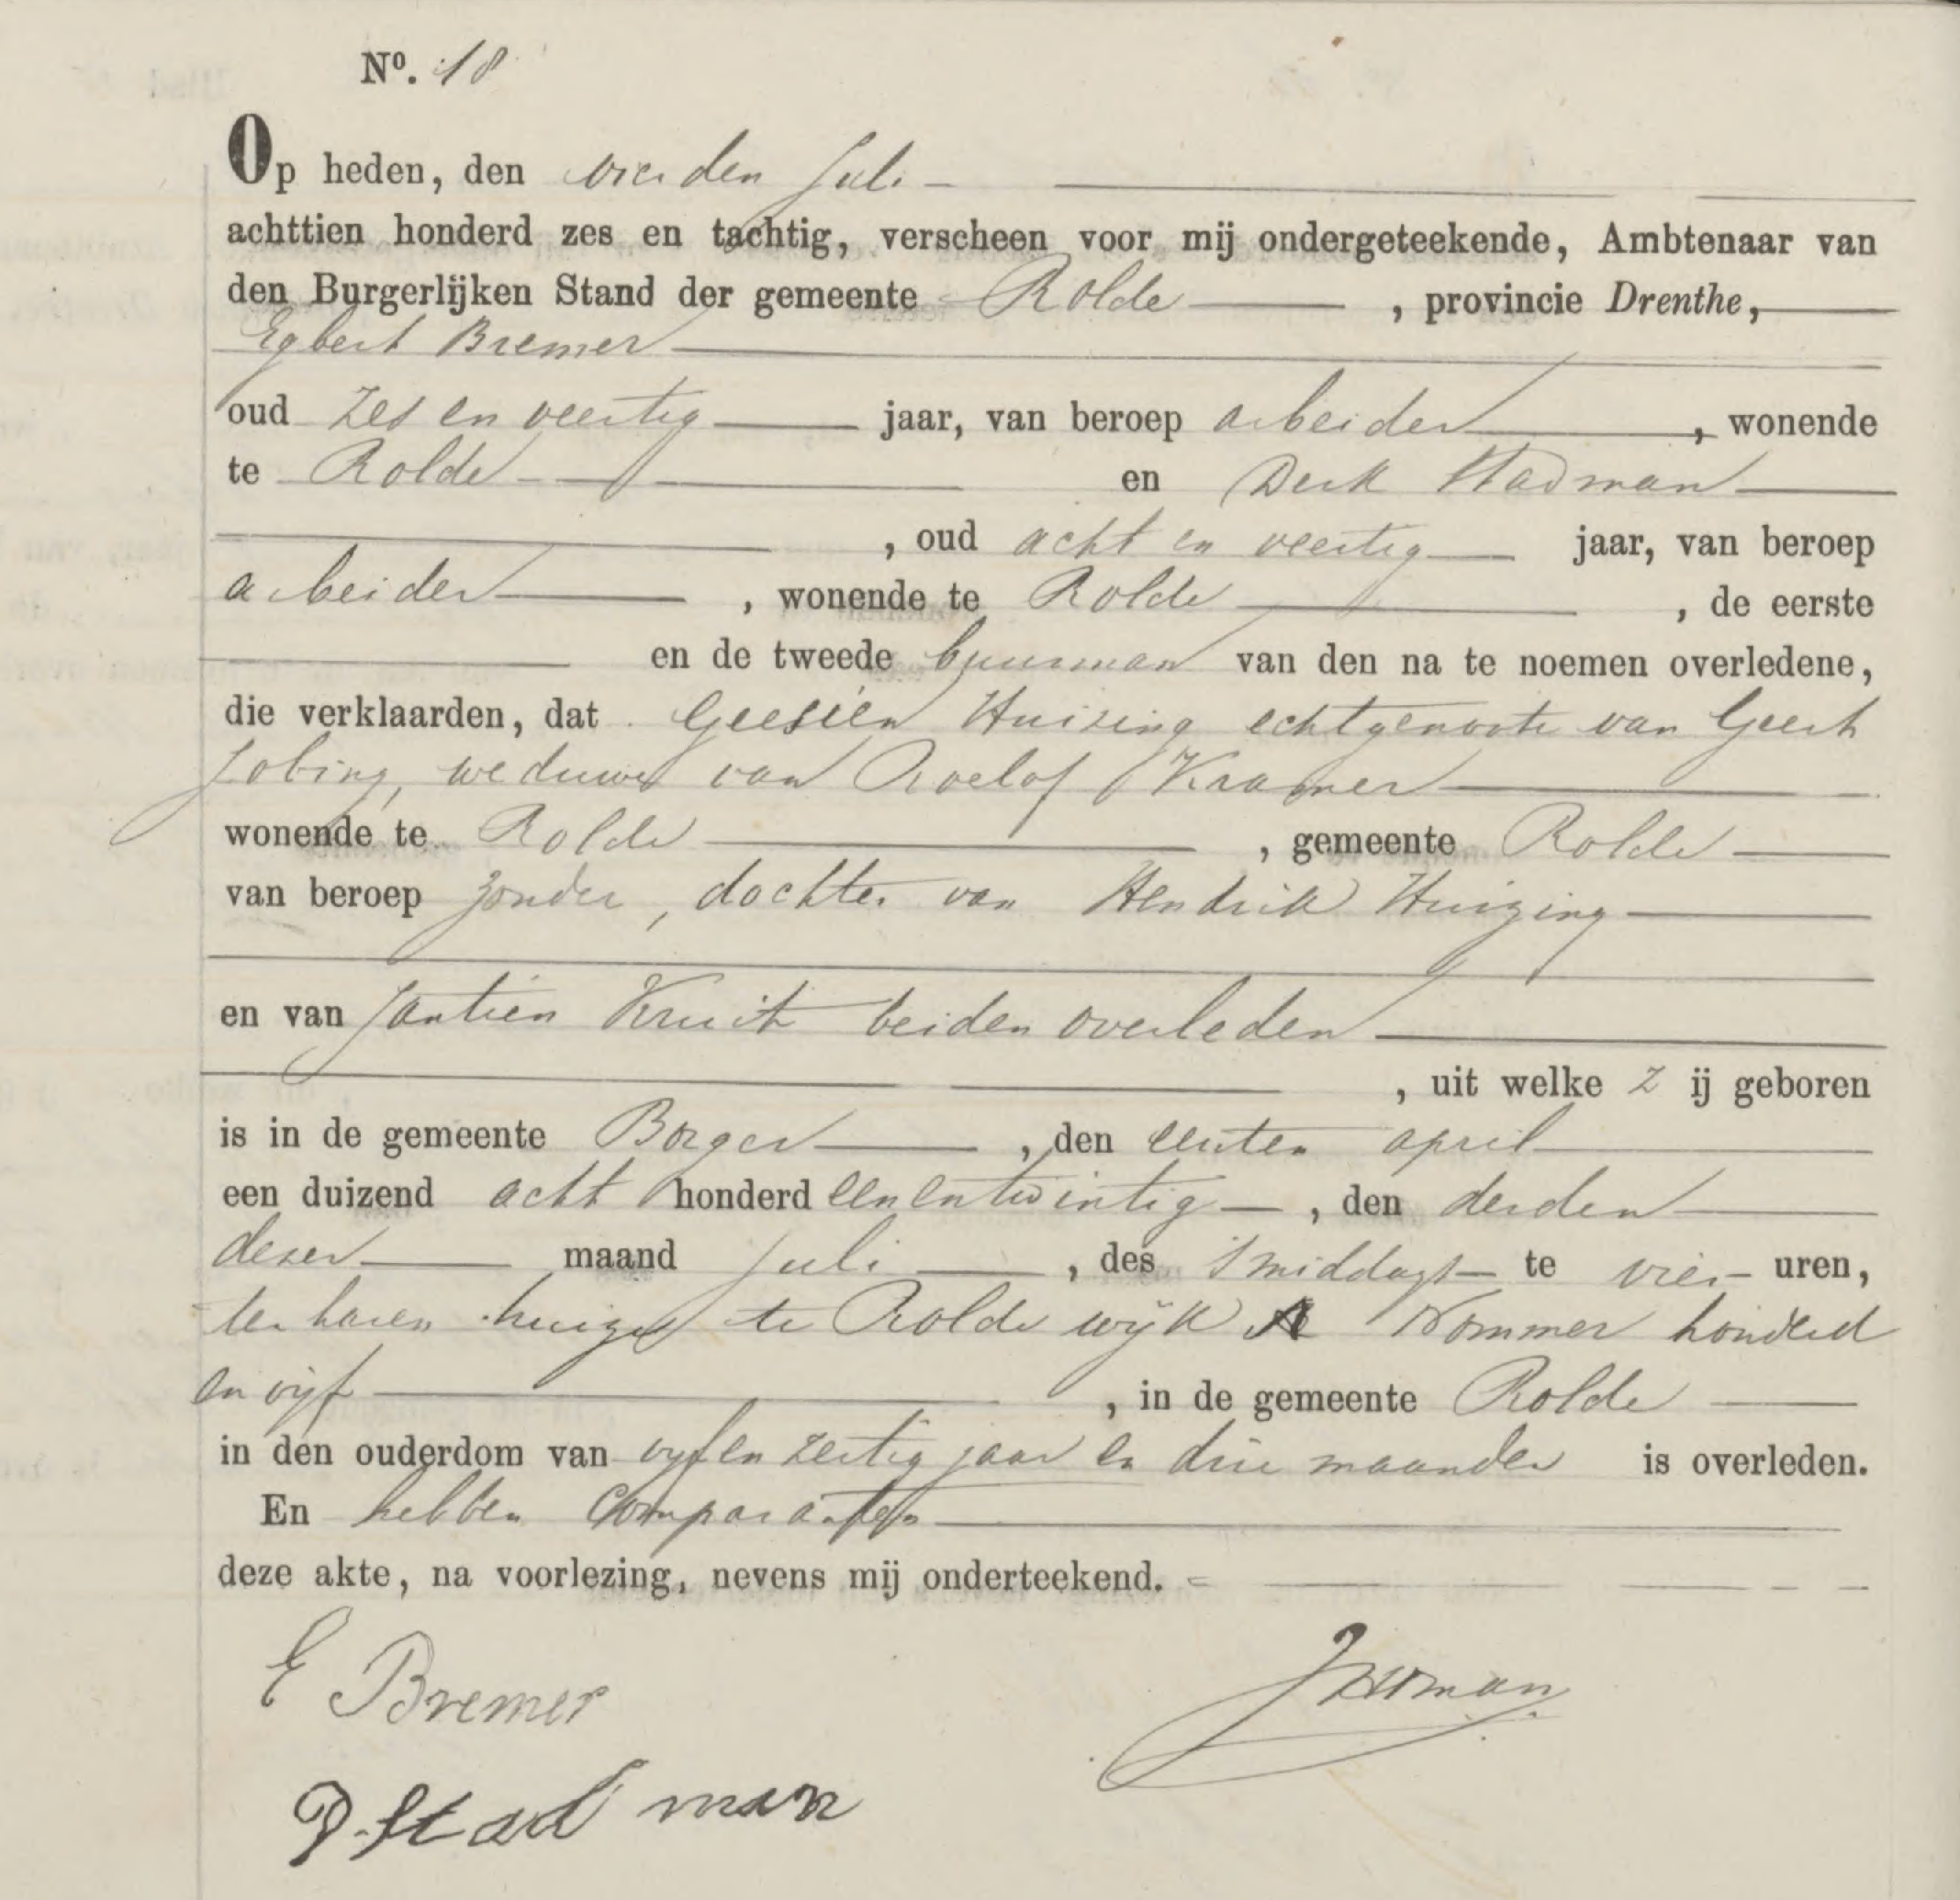 Nº. 18
Op heden, den vierden Juli
achttien honderd zes en tachtig, verscheen voor mij ondergeteekende, Ambtenaar van
den Burgerlijken Stand der gemeente Rolde, provincie Drenthe,
Egbert Bremer
oud zes en veertig jaar, van beroep arbeider, wonende
te Rolde en Derk Stadman
, oud acht en veertig jaar, van beroep
arbeider, wonende te Rolde, de eerste
en de tweede buurman van den na te noemen overledene,
die verklaarden, dat Geesien Huizing echtgenoote van Geert
Jobing, weduwe van Roelof Kramer
wonende te Rolde, gemeente Rolde
van beroep zonder, dochter van Hendrik Huizing
en van Jantien Kruit beiden overleden
, uit welke zij geboren
is in de gemeente Borger, den eersten april
een duizend acht honderd eenentwintig, den derden
dezer maand Juli, des smiddags te vier uren,
ten haren huize te Rolde wijk A Nommer honderd
en vijf, in de gemeente Rolde
in den ouderdom van vyf en zestig jaar en drie maanden is overleden.
En hebben Comparanten
deze akte, na voorlezing, nevens mij onderteekend.
E Bremer
D. Stadman